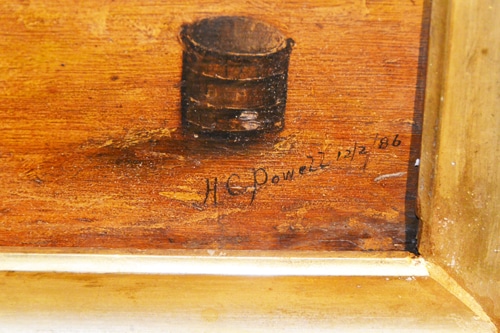 H C Powell 12/2/86